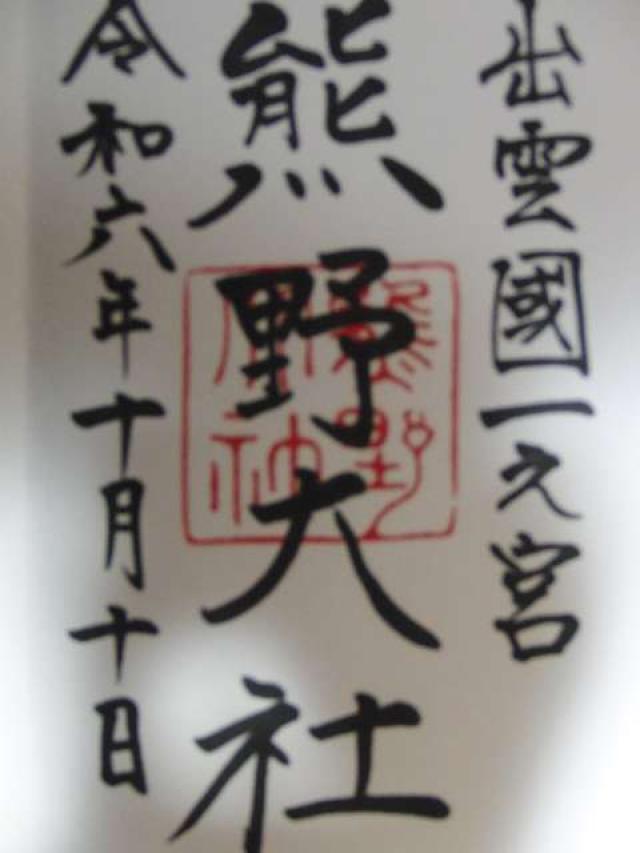 出雲國一之宮
熊野大社
令和六年十月十日